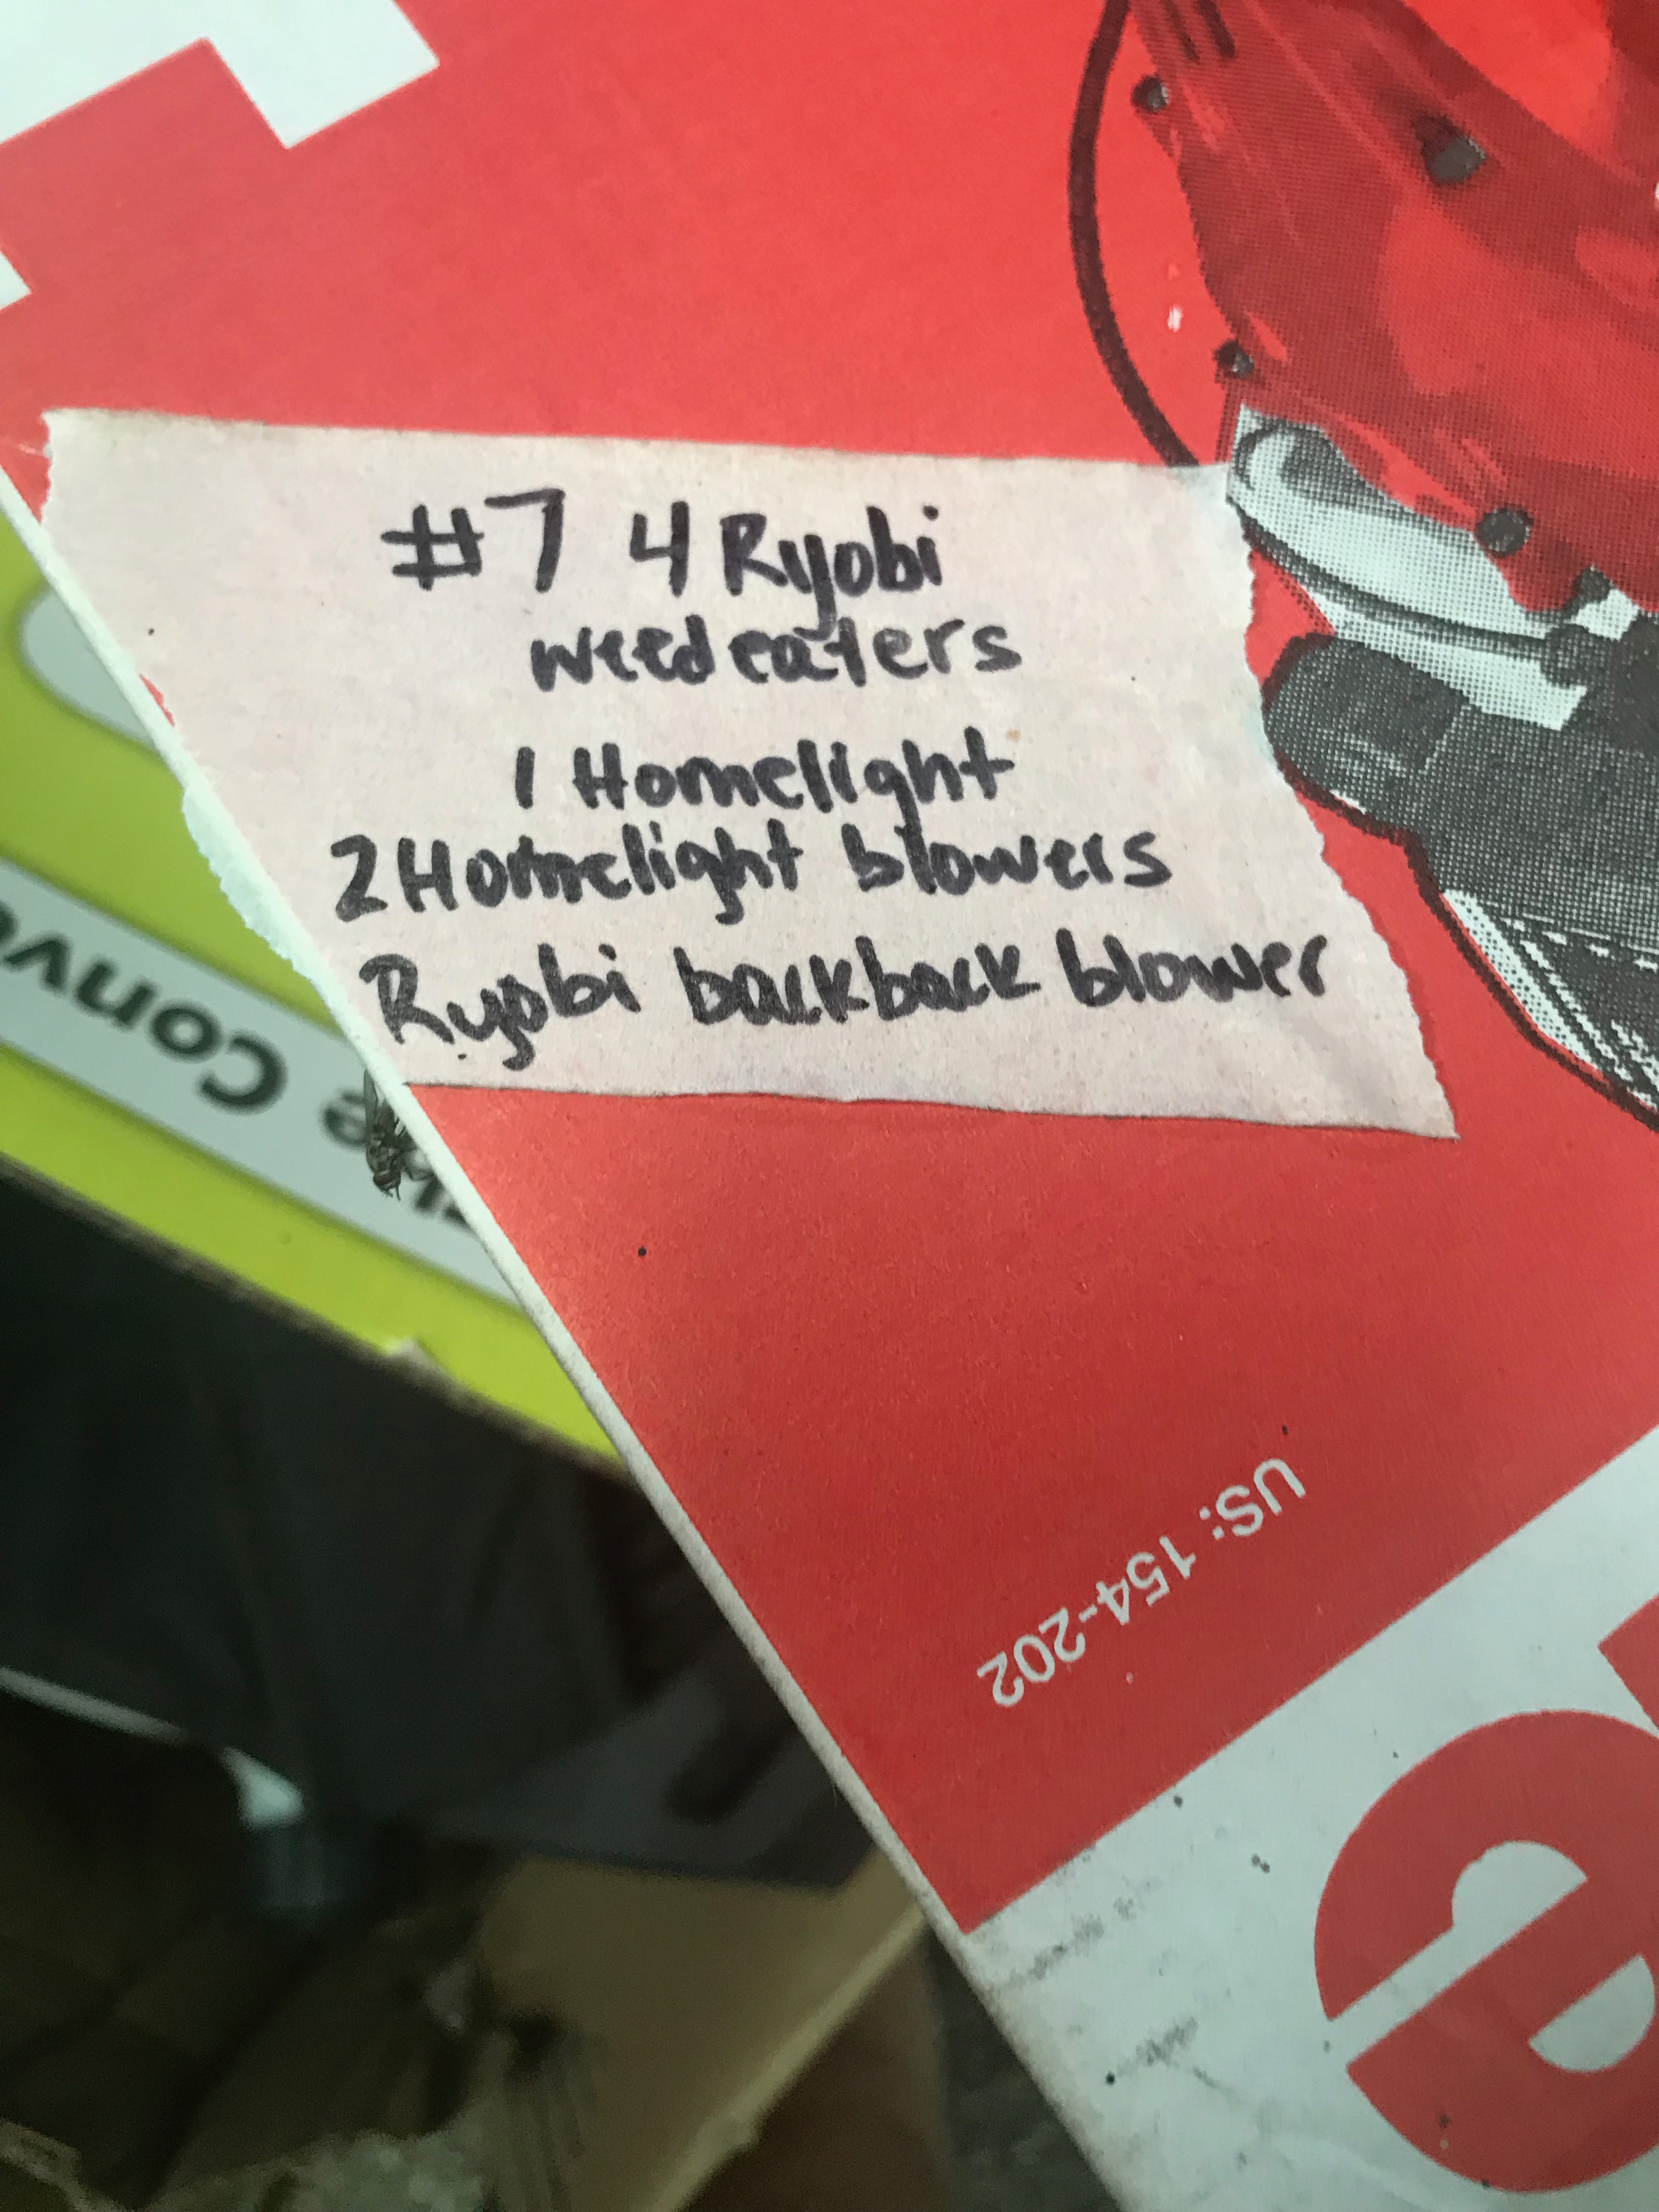 #7 4 Ryobi
weed eaters
1 Homelight
2 Homelight blowers
Ryobi backback blower
US: 154-202